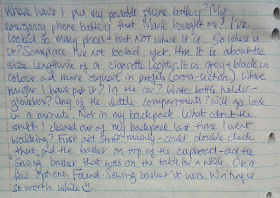 Where have I put my portable phone battery? My
emergency phone battery that Mark bought me? I've
looked so many places - but NOT where it is. So where is
it? Someplace I've not looked yet. Hm. It is about the
size lengthwise of a cigarette lighter. It is grey + black in
colour and more square in profile (cross-section). Where
might I have put it? In the car? Water bottle holder-
glovebox? Any of the little compartments? Will go look
in a minute. Not in my backpack. What about the
stuff I cleared out of my backpack last time I went
walking? First aid stuff mainly - could double check
that, and the basket on top of the cupboard - and the
sewing basket that was on the table for a while. OK a
few options. Found. Sewing basket it was. Writing is
so worth while